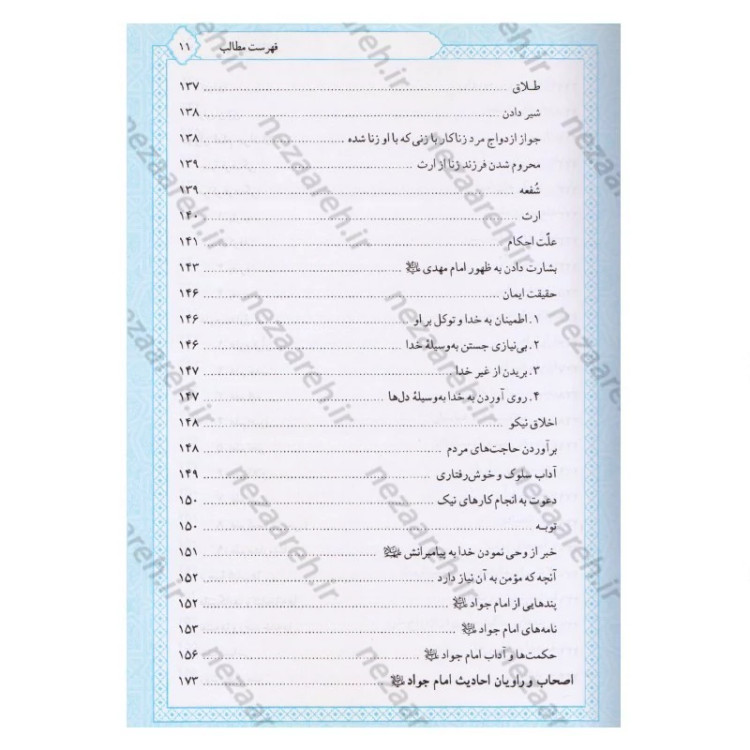 فهرست مطالب ۱۱
طلاق ........ ۱۳۷
شیر دادن ........ ۱۳۸
جواز ازدواج مرد زناکار با زنی که با او زنا شده ........ ۱۳۸
محروم شدن فرزند زنا از ارث ........ ۱۳۹
شُفعه ........ ۱۳۹
ارث ........ ۱۴۰
علّت احکام ........ ۱۴۱
بشارت دادن به ظهور امام مهدی ........ ۱۴۳
حقیقت ایمان ........ ۱۴۶
۱. اطمینان به خدا و توکل بر او ........ ۱۴۶
۲. بی‌نیازی جستن به‌وسیلهٔ خدا ........ ۱۴۶
۳. بریدن از غیر خدا ........ ۱۴۷
۴. روی آوردن به خدا به‌وسیلهٔ دل‌ها ........ ۱۴۷
اخلاق نیکو ........ ۱۴۸
برآوردن حاجت‌های مردم ........ ۱۴۸
آداب سلوک و خوش‌رفتاری ........ ۱۴۹
دعوت به انجام کارهای نیک ........ ۱۵۰
توبه ........ ۱۵۰
خبر از وحی نمودن خدا به پیامبرانش ........ ۱۵۱
آنچه که مؤمن به آن نیاز دارد ........ ۱۵۲
پندهایی از امام جواد ........ ۱۵۲
نامه‌های امام جواد ........ ۱۵۳
حکمت‌ها و آداب امام جواد ........ ۱۵۶
اصحاب و راویان احادیث امام جواد ........ ۱۷۳
nezaareh.ir